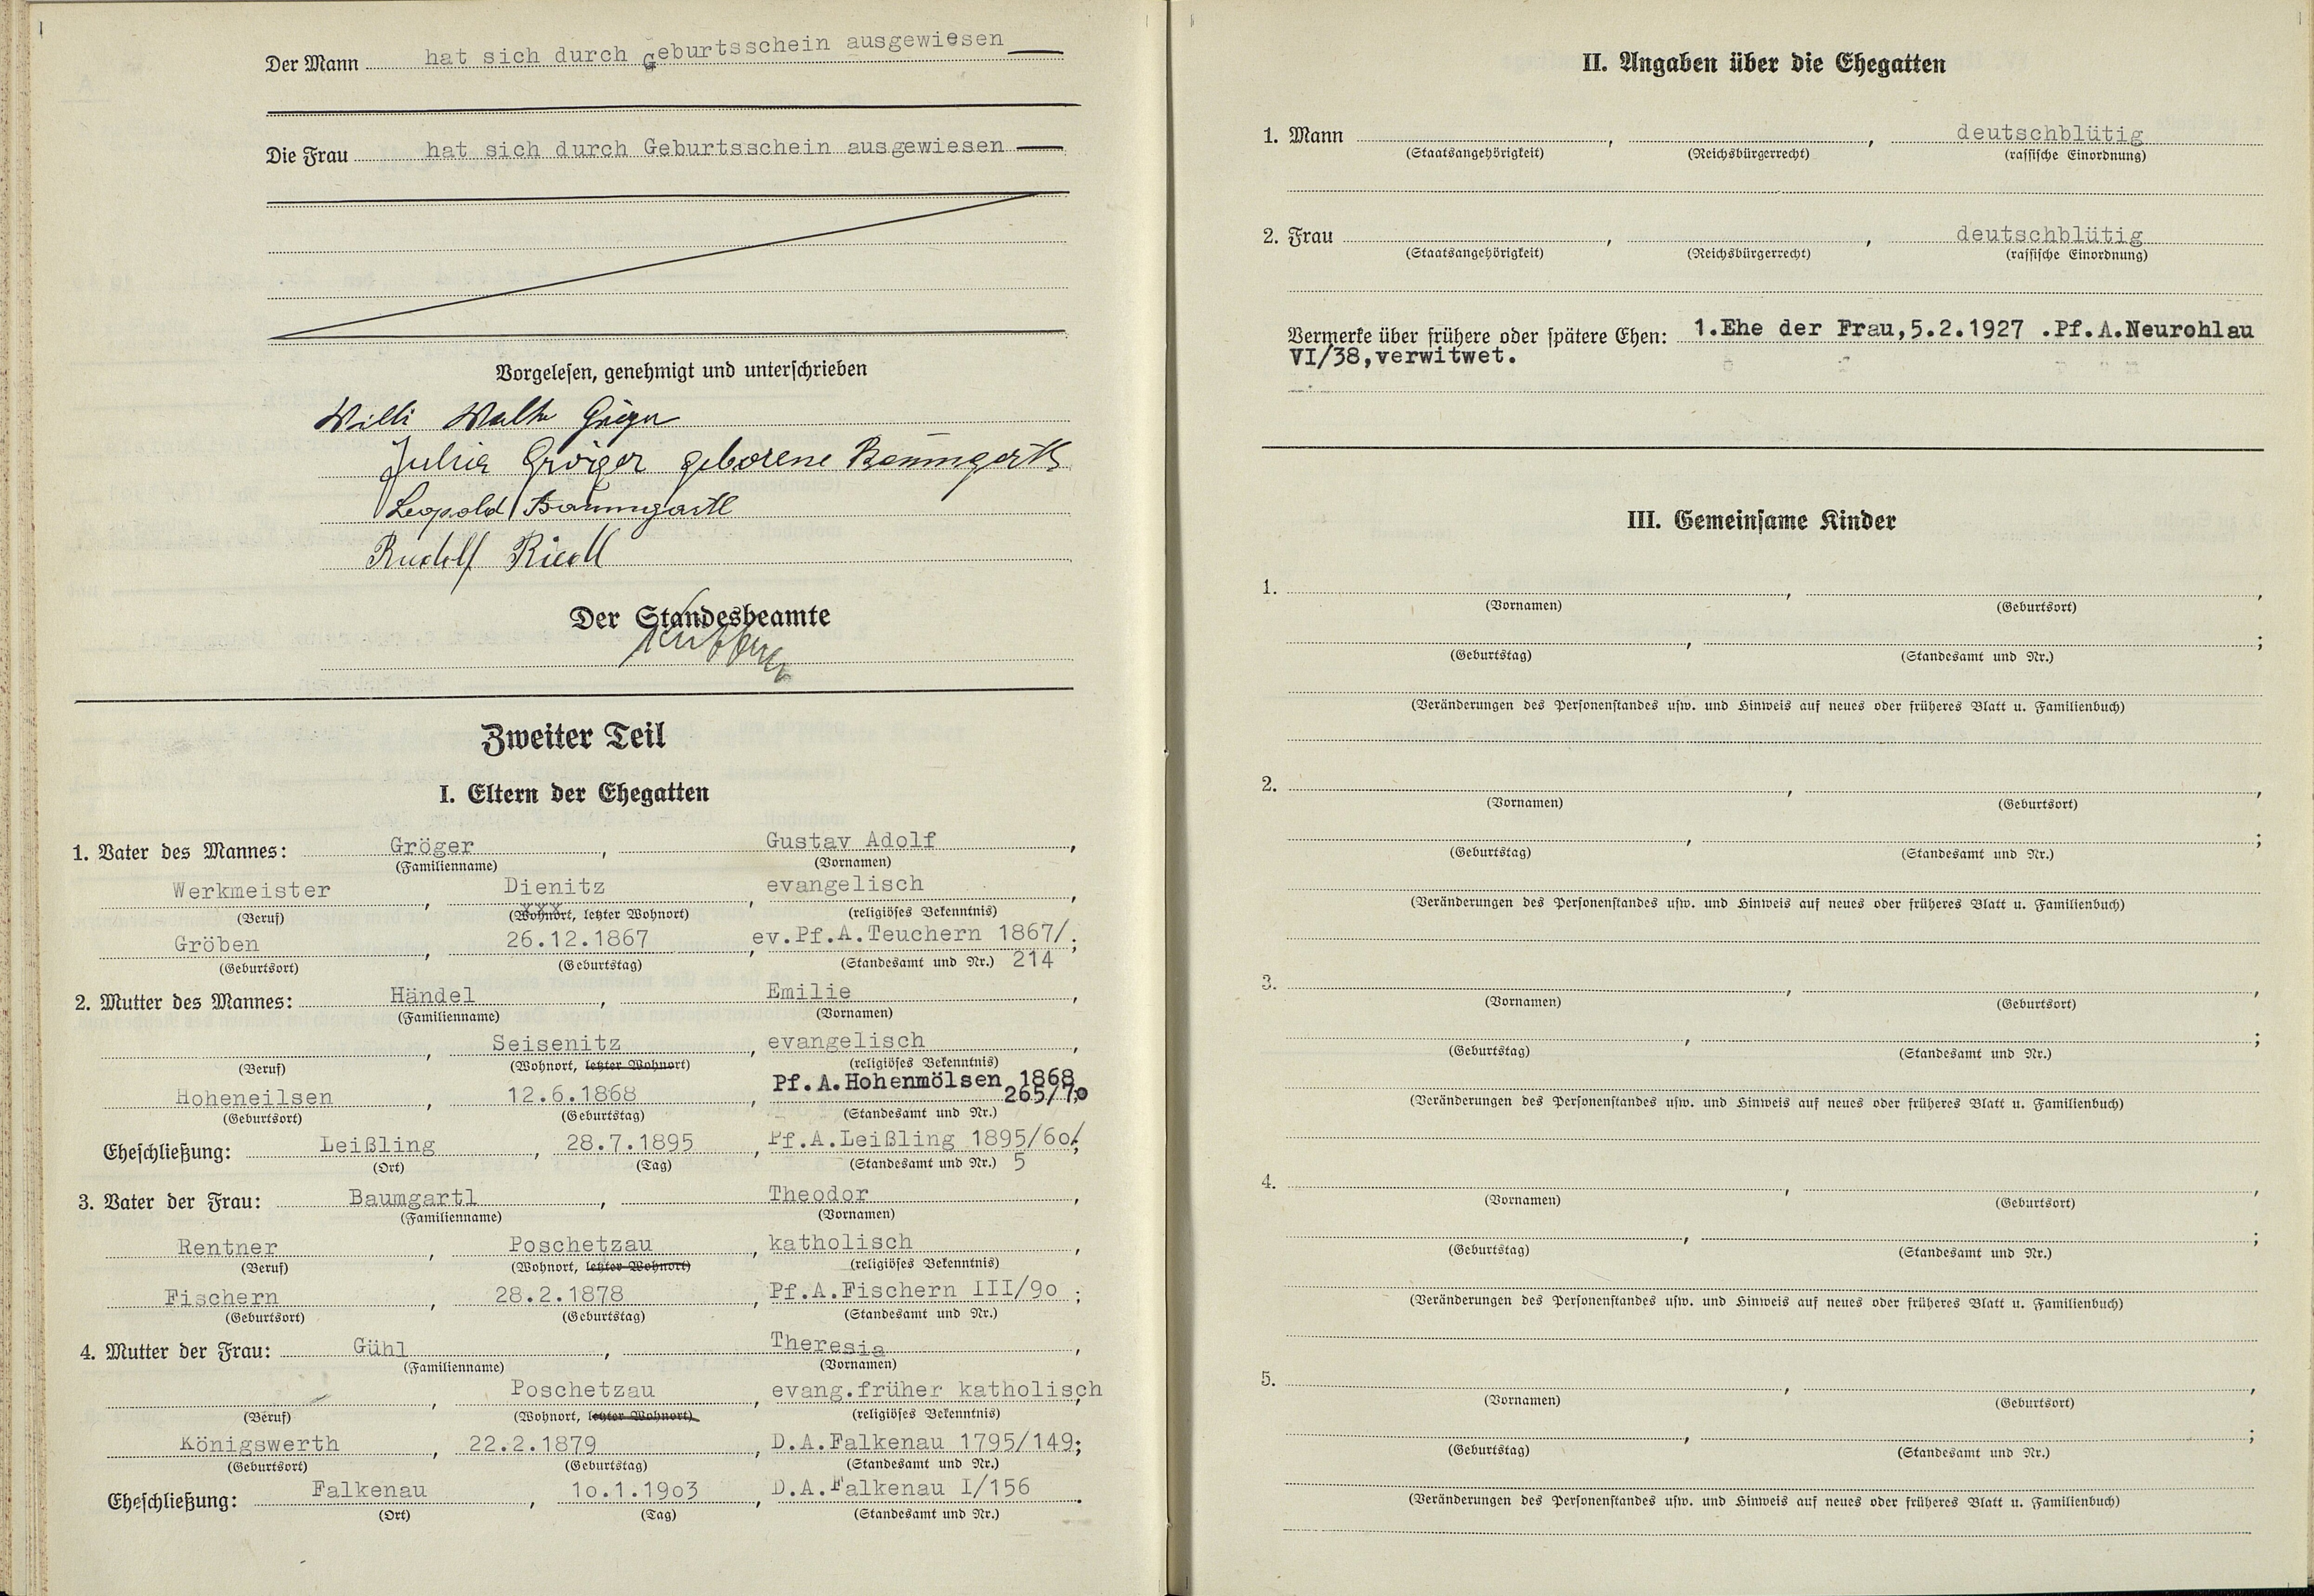 Der Mann hat sich durch Geburtsschein ausgewiesen
Die Frau hat sich durch Geburtsschein ausgewiesen
Vorgelesen, genehmigt und unterschrieben
Willi Walter Gröger
Julia Gröger geborene Baumgartl
Leopold Baumgartl
Rudolf Riedl
Der Standesbeamte
Zweiter Teil
I. Eltern der Ehegatten
1. Vater des Mannes: Gröger, Gustav Adolf,
(Familienname) (Vornamen)
Werkmeister, Dienitz, evangelisch,
(Beruf) (Wohnort, letzter Wohnort) (religiöses Bekenntnis)
Gröben, 26.12.1867, ev.Pf.A.Teuchern 1867/;
(Geburtsort) (Geburtstag) (Standesamt und Nr.) 214
2. Mutter des Mannes: Händel, Emilie,
(Familienname) (Vornamen)
, Seisenitz, evangelisch,
(Beruf) (Wohnort, letzter Wohnort) (religiöses Bekenntnis)
Pf.A.Hohenmölsen 1868
Hoheneilsen, 12.6.1868, 265/70
(Geburtsort) (Geburtstag) (Standesamt und Nr.)
Eheschließung: Leißling, 28.7.1895, Pf.A.Leißling 1895/60/
(Ort) (Tag) (Standesamt und Nr.) 5
3. Vater der Frau: Baumgartl, Theodor,
(Familienname) (Vornamen)
Rentner, Poschetzau, katholisch,
(Beruf) (Wohnort, letzter Wohnort) (religiöses Bekenntnis)
Fischern, 28.2.1878, Pf.A.Fischern III/90;
(Geburtsort) (Geburtstag) (Standesamt und Nr.)
4. Mutter der Frau: Gühl, Theresia,
(Familienname) (Vornamen)
, Poschetzau, evang.früher katholisch,
(Beruf) (Wohnort, letzter Wohnort) (religiöses Bekenntnis)
Königswerth, 22.2.1879, D.A.Falkenau 1795/149;
(Geburtsort) (Geburtstag) (Standesamt und Nr.)
Eheschließung: Falkenau, 10.1.1903, D.A.Falkenau I/156.
(Ort) (Tag) (Standesamt und Nr.)
II. Angaben über die Ehegatten
1. Mann , , deutschblütig
(Staatsangehörigkeit) (Reichsbürgerrecht) (rassische Einordnung)
2. Frau , , deutschblütig
(Staatsangehörigkeit) (Reichsbürgerrecht) (rassische Einordnung)
Vermerke über frühere oder spätere Ehen: 1.Ehe der Frau,5.2.1927 .Pf.A.Neurohlau
VI/38,verwitwet.
III. Gemeinsame Kinder
1. , ,
(Vornamen) (Geburtsort)
, ;
(Geburtstag) (Standesamt und Nr.)
(Veränderungen des Personenstandes usw. und Hinweis auf neues oder früheres Blatt u. Familienbuch)
2. , ,
(Vornamen) (Geburtsort)
, ;
(Geburtstag) (Standesamt und Nr.)
(Veränderungen des Personenstandes usw. und Hinweis auf neues oder früheres Blatt u. Familienbuch)
3. , ,
(Vornamen) (Geburtsort)
, ;
(Geburtstag) (Standesamt und Nr.)
(Veränderungen des Personenstandes usw. und Hinweis auf neues oder früheres Blatt u. Familienbuch)
4. , ,
(Vornamen) (Geburtsort)
, ;
(Geburtstag) (Standesamt und Nr.)
(Veränderungen des Personenstandes usw. und Hinweis auf neues oder früheres Blatt u. Familienbuch)
5. , ,
(Vornamen) (Geburtsort)
, ;
(Geburtstag) (Standesamt und Nr.)
(Veränderungen des Personenstandes usw. und Hinweis auf neues oder früheres Blatt u. Familienbuch)